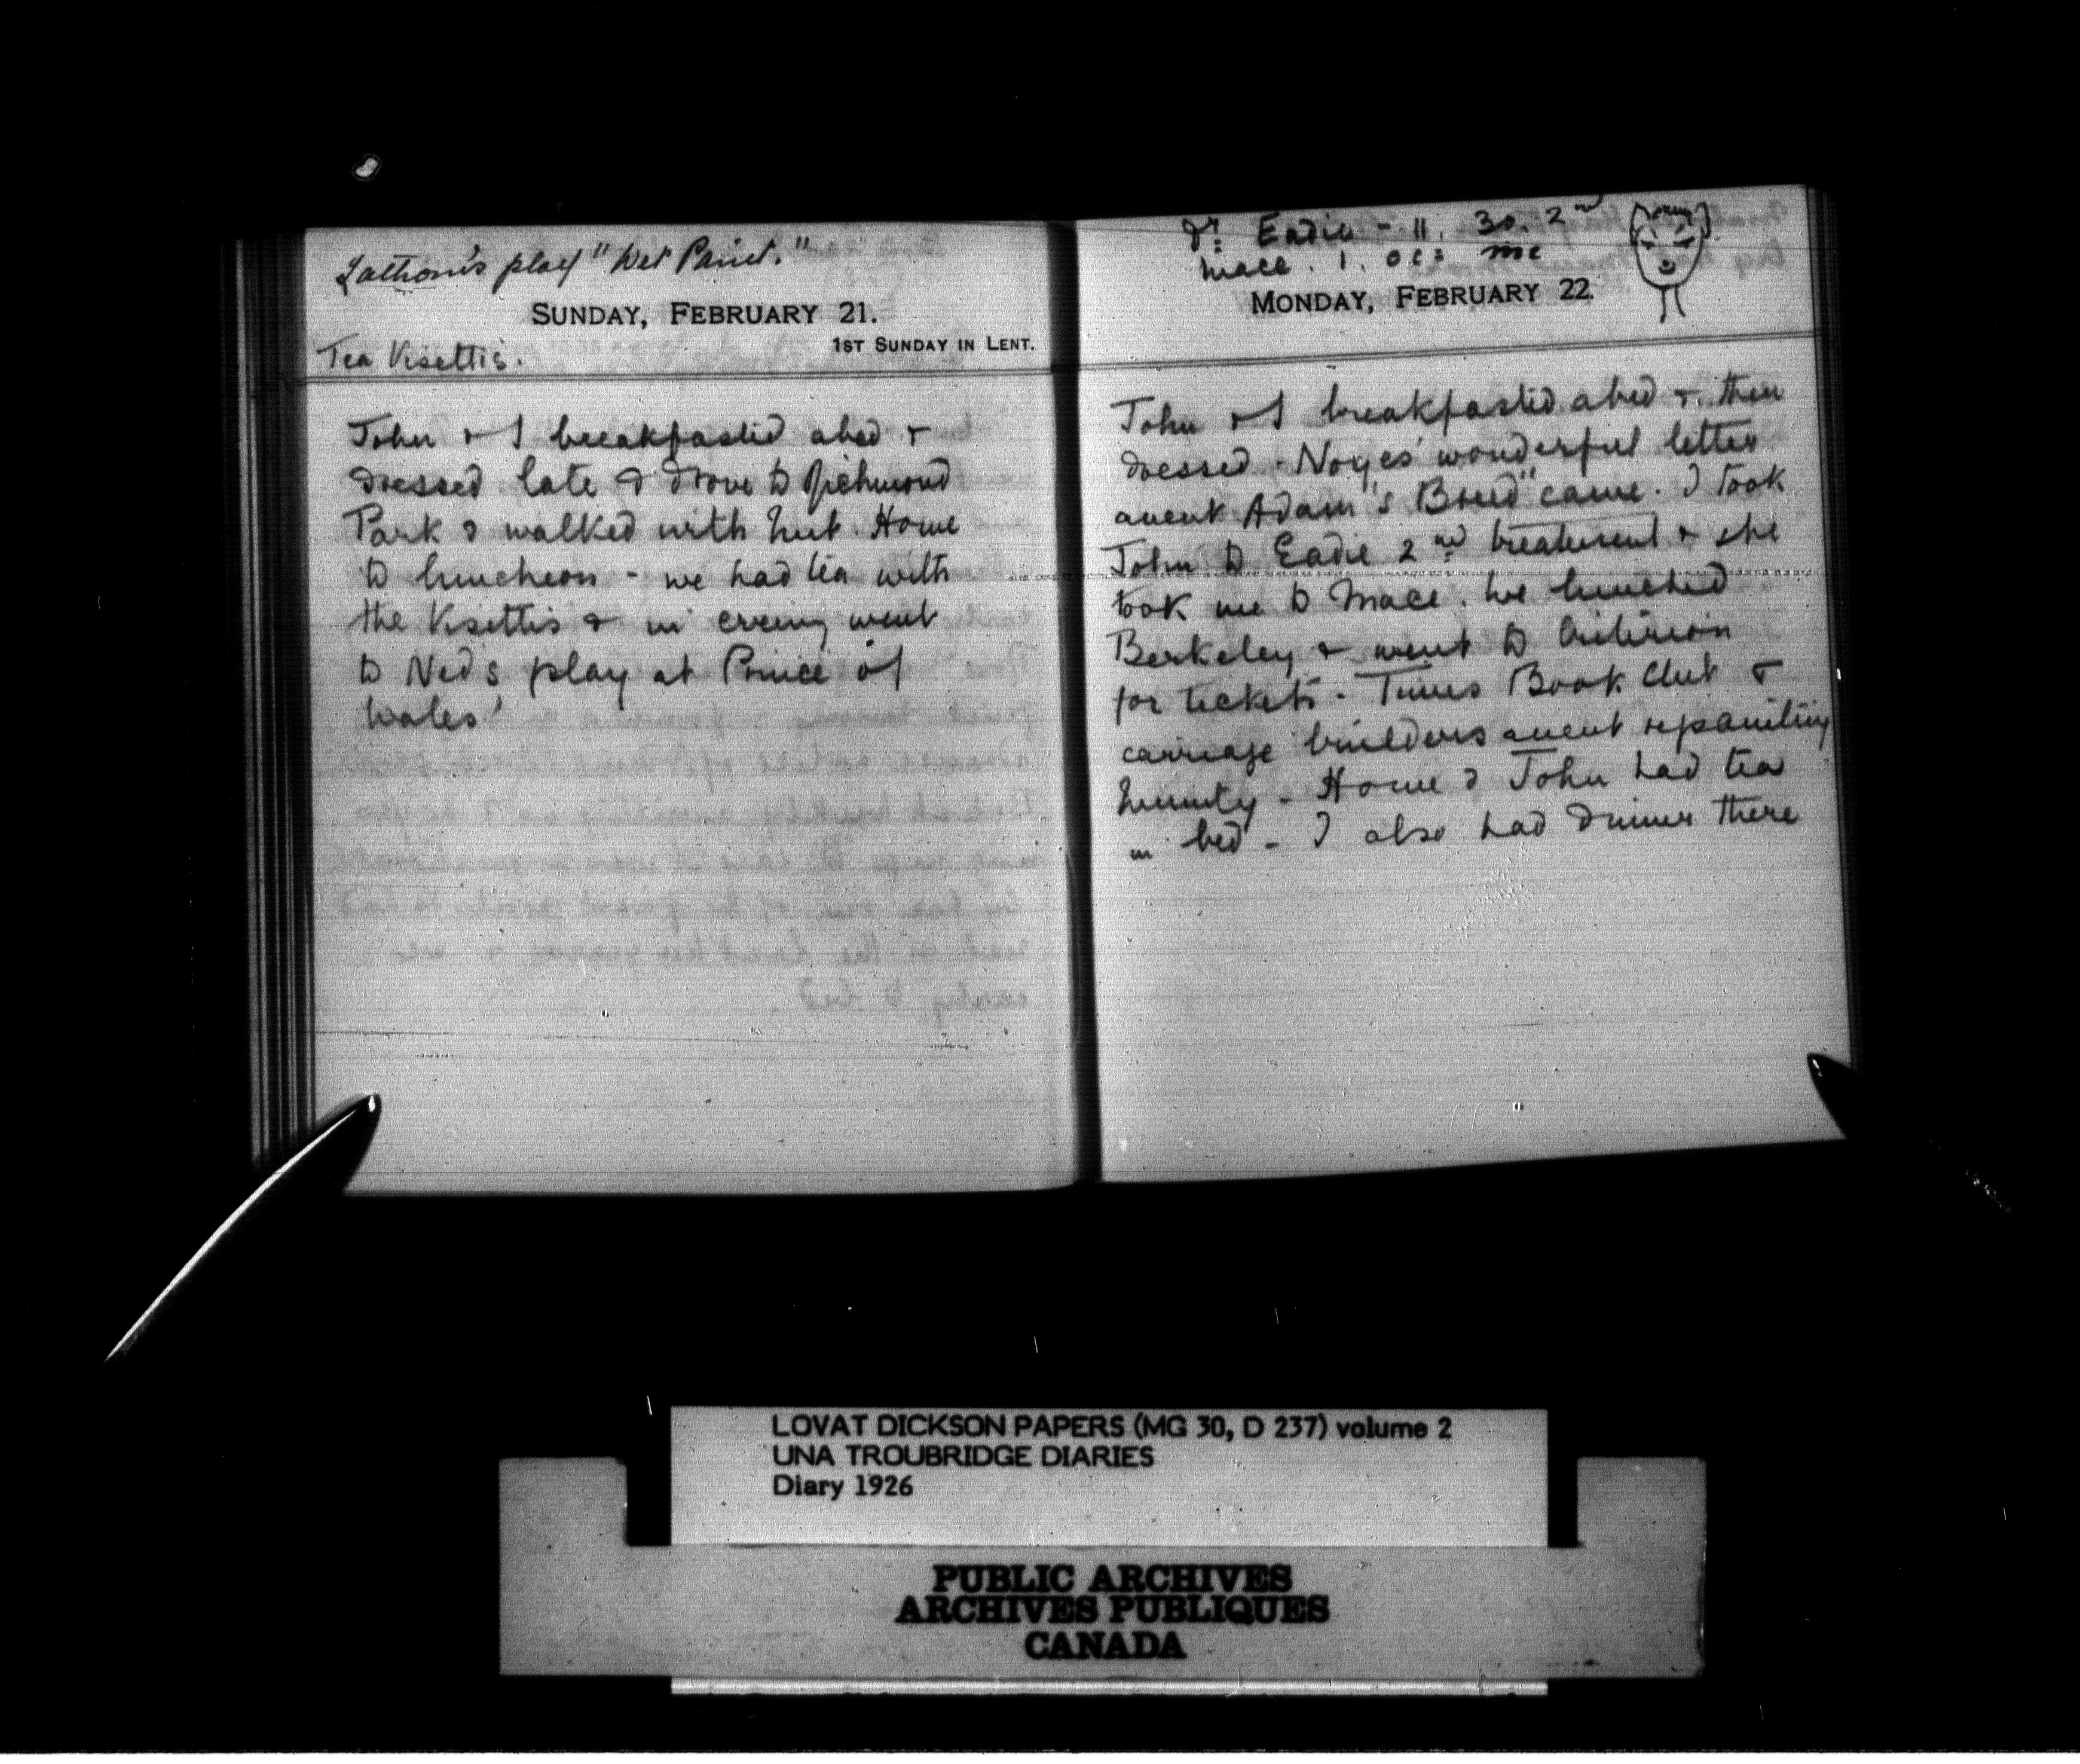 Lathom's play "Wet Paint."
SUNDAY, FEBRUARY 21.
1ST SUNDAY IN LENT.
Tea Visettis.
John & I breakfasted abed &
dressed late & drove to Richmond
Park & walked with Nut. Home
to luncheon - we had tea with
the Visettis & in evening went
to Neds play at Prince of
Wales'
Dr: Eadie - 11. 30. 2nd
Mace. 1. oc: me
MONDAY, FEBRUARY 22.
John & I breakfasted abed & then
dressed - Noyes' wonderful letter
anent Adam"s Breed" came. I took
John to Eadie 2nd treatment & she
took me to Mace. We lunched
Berkeley & went to Criterion
for tickets - Times Book Club &
carriage builders anent repainting
- Home & John had tea
in bed - I also had dinner there
LOVAT DICKSON PAPERS (MG 30, D 237) volume 2
UNA TROUBRIDGE DIARIES
Diary 1926
PUBLIC ARCHIVES
ARCHIVES PUBLIQUES
CANADA